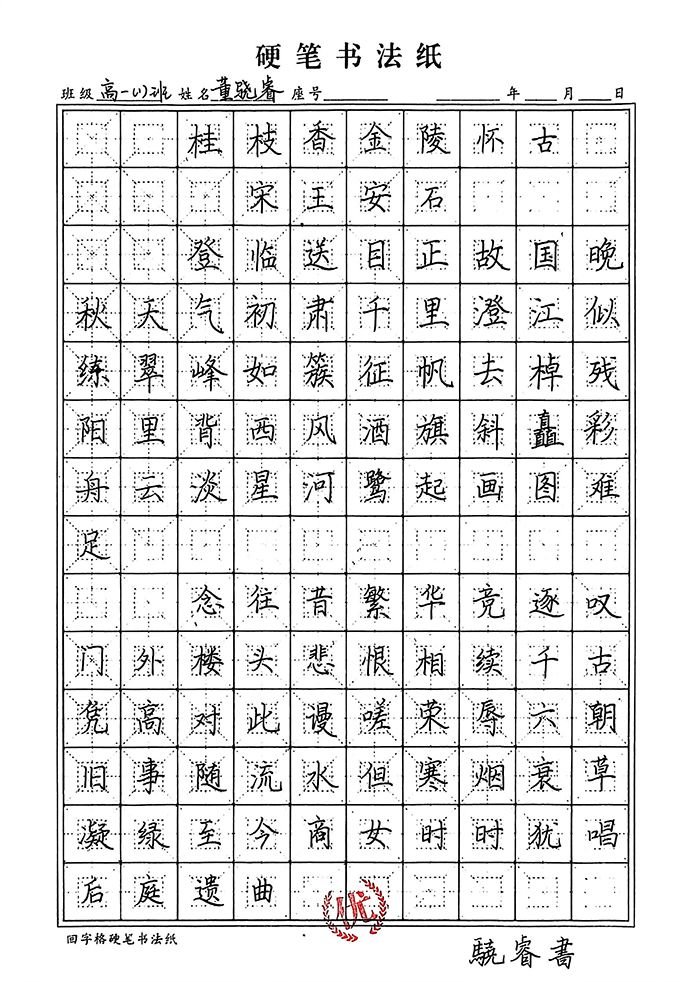 硬笔书法纸
班级 高一(1)班 姓名 董骁睿 座号 年 月 日
桂枝香金陵怀古
宋王安石
登临送目正故国晚
秋天气初肃千里澄江似
练翠峰如簇征帆去棹残
阳里背西风酒旗斜矗彩
舟云淡星河鹭起画图难
足
念往昔繁华竞逐叹
门外楼头悲恨相续千古
凭高对此谩嗟荣辱六朝
旧事随流水但寒烟衰草
凝绿至今商女时时犹唱
后庭遗曲
优
回字格硬笔书法纸
驍睿書